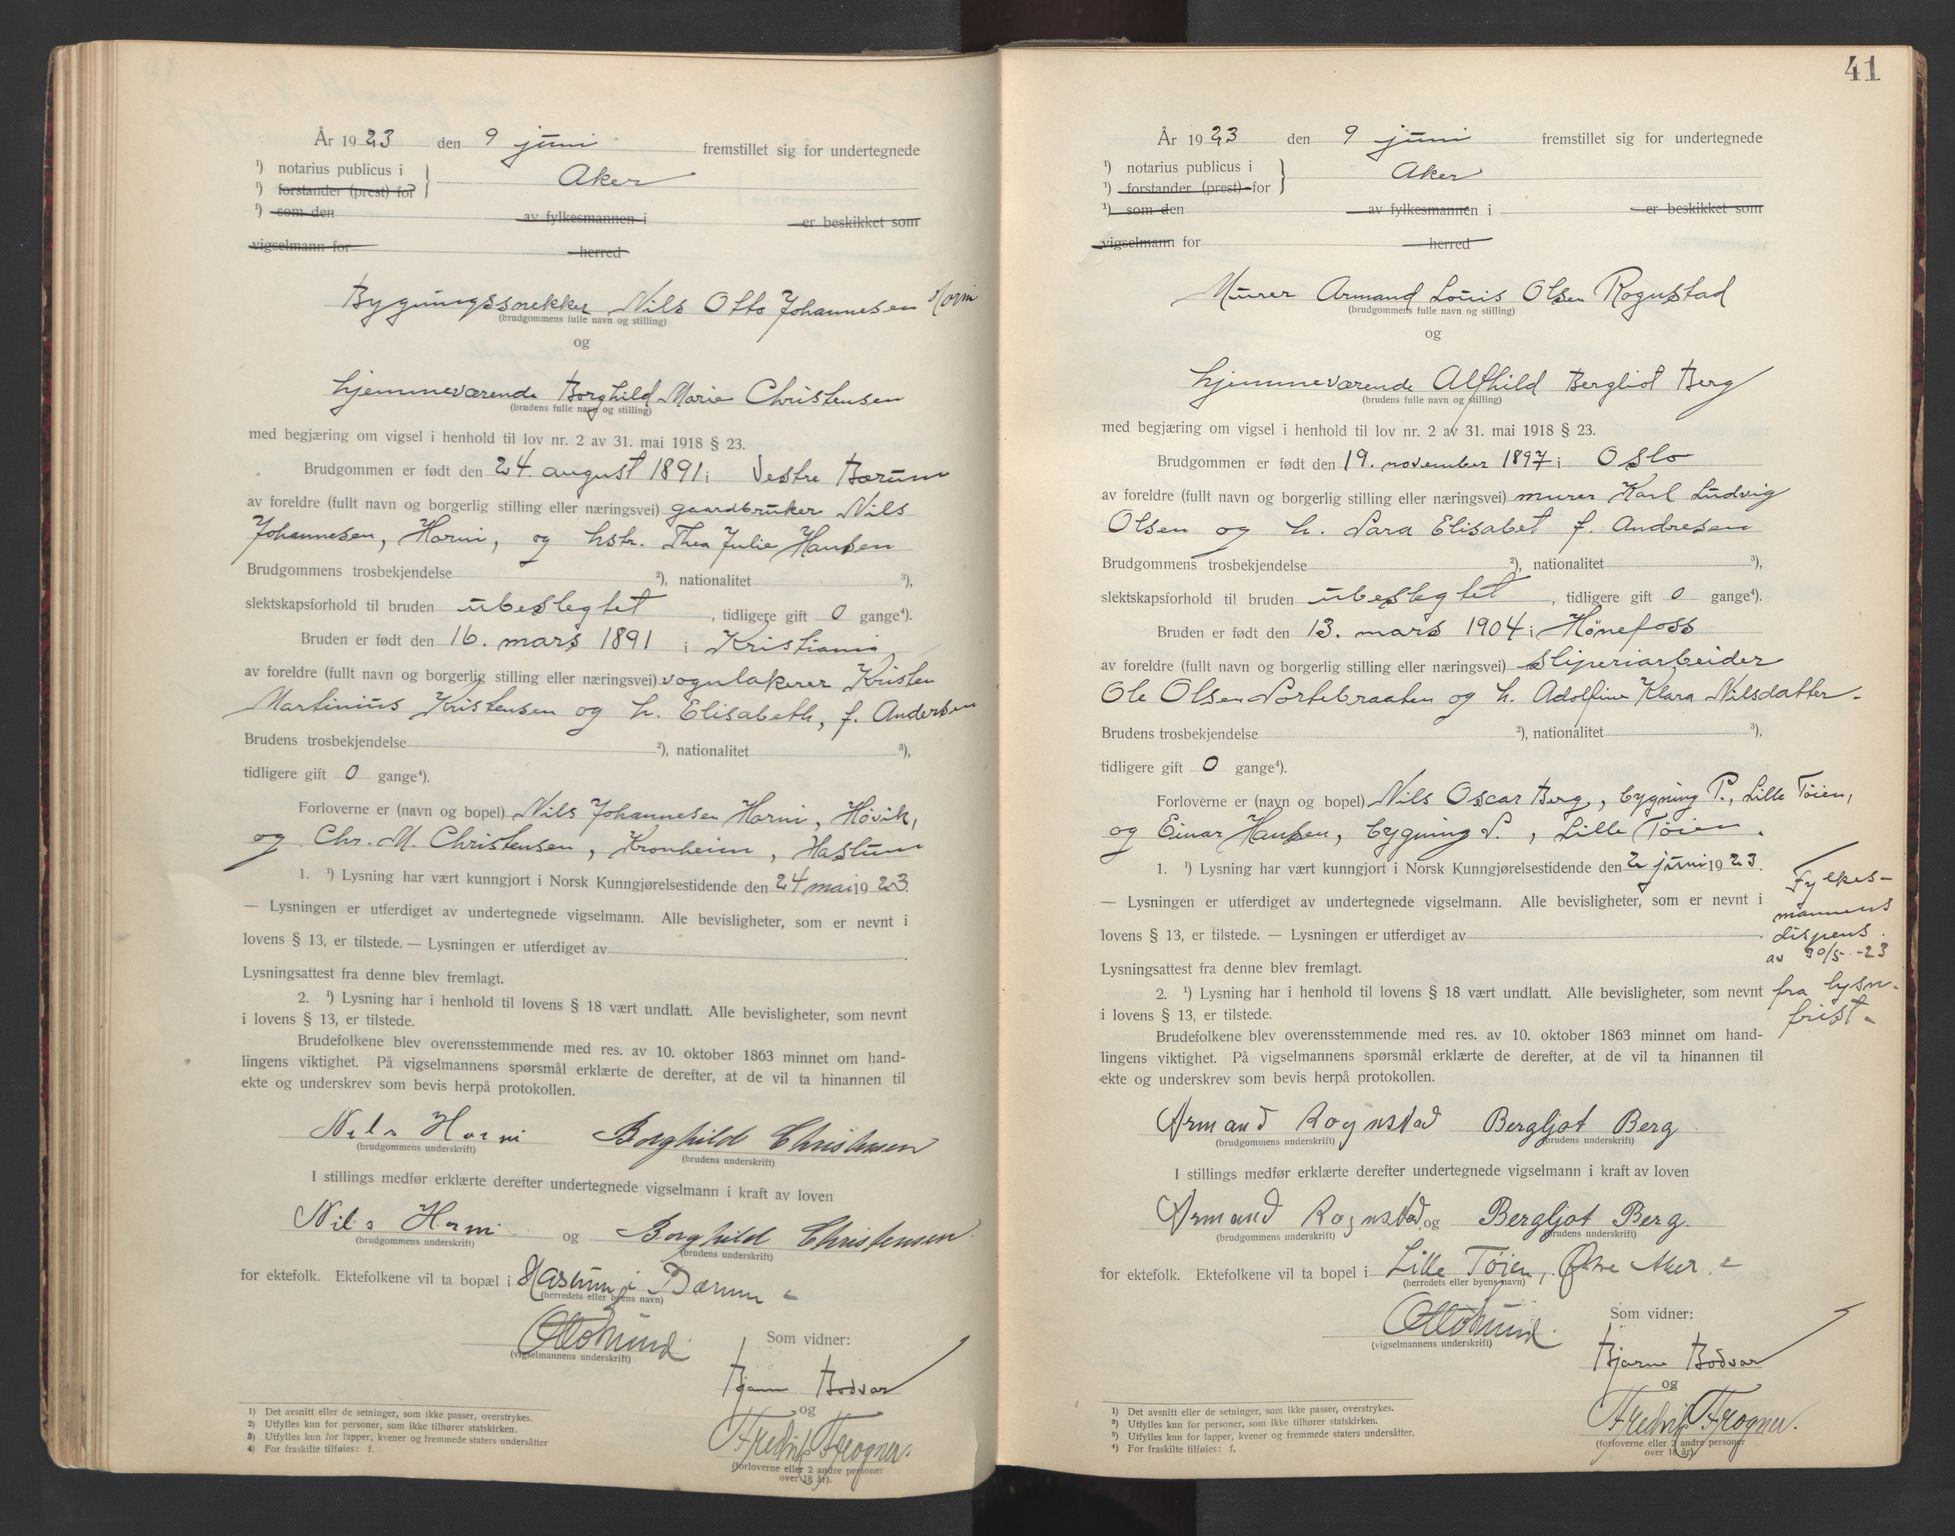 År 1923 den 9 juni fremstillet sig for undertegnede
¹) notarius publicus i
¹) forstander (prest) for } Aker
¹) som den av fylkesmannen i er beskikket som
vigselmann for herred
Bygningssnekker Nils Otto Johannesen Horni
(brudgommens fulle navn og stilling)
og
hjemmeværende Borghild Marie Christensen
(brudens fulle navn og stilling)
med begjæring om vigsel i henhold til lov nr. 2 av 31. mai 1918 § 23.
Brudgommen er født den 24. august 1891 i Vestre Bærum
av foreldre (fullt navn og borgerlig stilling eller næringsvei) gaardbruker Nils
Johannesen, Horni, og hstr. Thea Julie Hansen
Brudgommens trosbekjendelse ²), nationalitet ³),
slektskapsforhold til bruden ubeslegtet, tidligere gift 0 gange⁴).
Bruden er født den 16. mars 1891 i Kristiania
av foreldre (fullt navn og borgerlig stilling eller næringsvei) vognlakerer Kristen
Martinius Kristensen og h. Elisabeth, f. Andersen
Brudens trosbekjendelse ²), nationalitet ³),
tidligere gift 0 gange⁴).
Forloverne er (navn og bopel) Nils Johannesen Horni, Høvik,
og Chr. M. Christensen, Kronheim, Haslum
1. ¹) Lysning har vært kunngjort i Norsk Kunngjørelsestidende den 24 mai 1923.
— Lysningen er utferdiget av undertegnede vigselmann. Alle bevisligheter, som er nevnt i
lovens § 13, er tilstede. — Lysningen er utferdiget av
Lysningsattest fra denne blev fremlagt.
2. ¹) Lysning har i henhold til lovens § 18 vært undlatt. Alle bevisligheter, som nevnt
i lovens § 13, er tilstede.
Brudefolkene blev overensstemmende med res. av 10. oktober 1863 minnet om hand-
lingens viktighet. På vigselmannens spørsmål erklærte de derefter, at de vil ta hinannen til
ekte og underskrev som bevis herpå protokollen.
Nils Horni Borghild Christensen
(brudgommens underskrift) (brudens underskrift)
I stillings medfør erklærte derefter undertegnede vigselmann i kraft av loven
Nils Horni og Borghild Christensen
(brudgommens underskrift) (brudens underskrift)
for ektefolk. Ektefolkene vil ta bopæl i Haslum i Bærum
(herredets eller byens navn)
Som vidner:
(vigselmannens underskrift)
Bjarne Bodvar
og
Fredrik Frogner.
(forloverne eller 2 andre personer
over 18 år).
¹) Det avsnitt eller de setninger, som ikke passer, overstrykes.
²) Utfylles kun for personer, som ikke tilhører statskirken.
³) Utfylles kun for lapper, kvener og fremmede staters undersåtter
⁴) For fraskilte tilføies: f.
41
År 1923 den 9 juni fremstillet sig for undertegnede
¹) notarius publicus i
¹) forstander (prest) for } Aker
¹) som den av fylkesmannen i er beskikket som
vigselmann for herred
Murer Armand Louis Olsen Rognstad
(brudgommens fulle navn og stilling)
og
hjemmeværende Alfhild Bergliot Berg
(brudens fulle navn og stilling)
med begjæring om vigsel i henhold til lov nr. 2 av 31. mai 1918 § 23.
Brudgommen er født den 19. november 1897 i Oslo
av foreldre (fullt navn og borgerlig stilling eller næringsvei) murer Karl Ludvig
Olsen og h. Sara Elisabet f. Andresen
Brudgommens trosbekjendelse ²), nationalitet ³),
slektskapsforhold til bruden ubeslegtet, tidligere gift 0 gange⁴).
Bruden er født den 13. mars 1904 i Hønefoss
av foreldre (fullt navn og borgerlig stilling eller næringsvei) sliperiarbeider
Ole Olsen Sortebraaten og h. Adolfine Klara Nilsdatter.
Brudens trosbekjendelse ²), nationalitet ³),
tidligere gift 0 gange⁴).
Forloverne er (navn og bopel) Nils Oscar Berg, bygning P., Lille Tøien,
og Einar Hansen, bygning S., Lille Tøien.
1. ¹) Lysning har vært kunngjort i Norsk Kunngjørelsestidende den 2 juni 1923.
— Lysningen er utferdiget av undertegnede vigselmann. Alle bevisligheter, som er nevnt i
lovens § 13, er tilstede. — Lysningen er utferdiget av
Lysningsattest fra denne blev fremlagt.
2. ¹) Lysning har i henhold til lovens § 18 vært undlatt. Alle bevisligheter, som nevnt
i lovens § 13, er tilstede.
Fylkes-
mannens
dispens.
av 30/5 -23
fra lysn.
frist
Brudefolkene blev overensstemmende med res. av 10. oktober 1863 minnet om hand-
lingens viktighet. På vigselmannens spørsmål erklærte de derefter, at de vil ta hinannen til
ekte og underskrev som bevis herpå protokollen.
Armand Rognstad Bergljot Berg
(brudgommens underskrift) (brudens underskrift)
I stillings medfør erklærte derefter undertegnede vigselmann i kraft av loven
Armand Rognstad og Bergljot Berg.
(brudgommens underskrift) (brudens underskrift)
for ektefolk. Ektefolkene vil ta bopel i Lille Tøien, Østre Aker.
(herredets eller byens navn)
Som vidner:
(vigselmannens underskrift)
Bjarne Bodvar
og
Fredrik Frogner.
(forloverne eller 2 andre personer
over 18 år).
¹) Det avsnitt eller de setninger, som ikke passer, overstrykes.
²) Utfylles kun for personer, som ikke tilhører statskirken.
³) Utfylles kun for lapper, kvener og fremmede staters undersåtter.
⁴) For fraskilte tilføies: f.